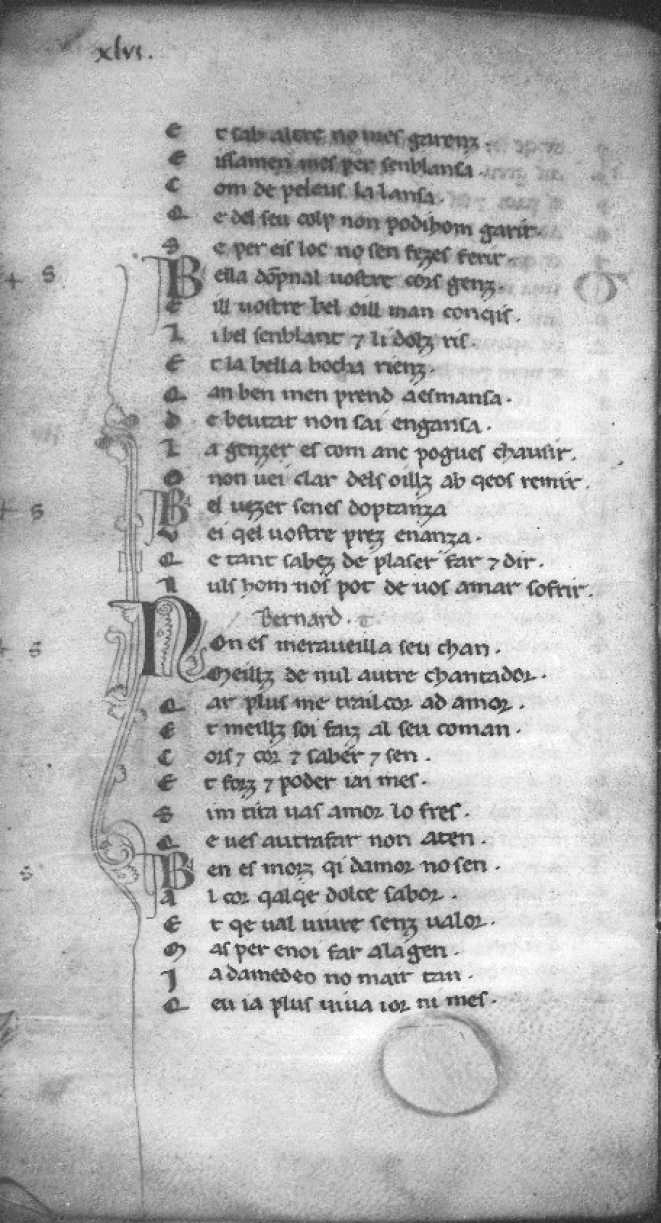 xlvi.
E t sab altre no mes garenz.
E issamen mes per senblansa.
C om de peleus la lansa.
Q e del seu colp non podihom garir.
S e per eis loc no sen fezes ferir.
B ella dõpnal vostre cors genz.
E ill vostre bel oill man conqis.
L i bel senblant ⁊ li dolz ris.
E t la bella bocha rienz.
Q an ben men prend aesmansa.
D e beutat non sai engansa.
L a genzer es com anc pogues chausir.
O non vei clar dels oillz ab qeos remir.
B el vezer senes doptanza
V ei qel vostre prez enanza.
Q e tant sabez de plaser far ⁊ dir.
N uls hom nos pot de vos amar sofrir.
Bernard. t.
N On es meraveilla seu chan.
Meillz de nul autre chantador.
Q ar plus me trail cor ad amor.
E t meillz soi faiz al seu coman.
C ors ⁊ cor ⁊ saber ⁊ sen.
E t forz ⁊ poder iai mes.
S im tira vas amor lo fres.
Q e ves autrafar non aten.
B en es morz qi damor no sen.
A l cor qalqe dolce sabor.
E t qe val viure senz valor.
M as per enoi far ala gen.
J a damedeo no mair tan.
Q eu ia plus viva ior ni mes.